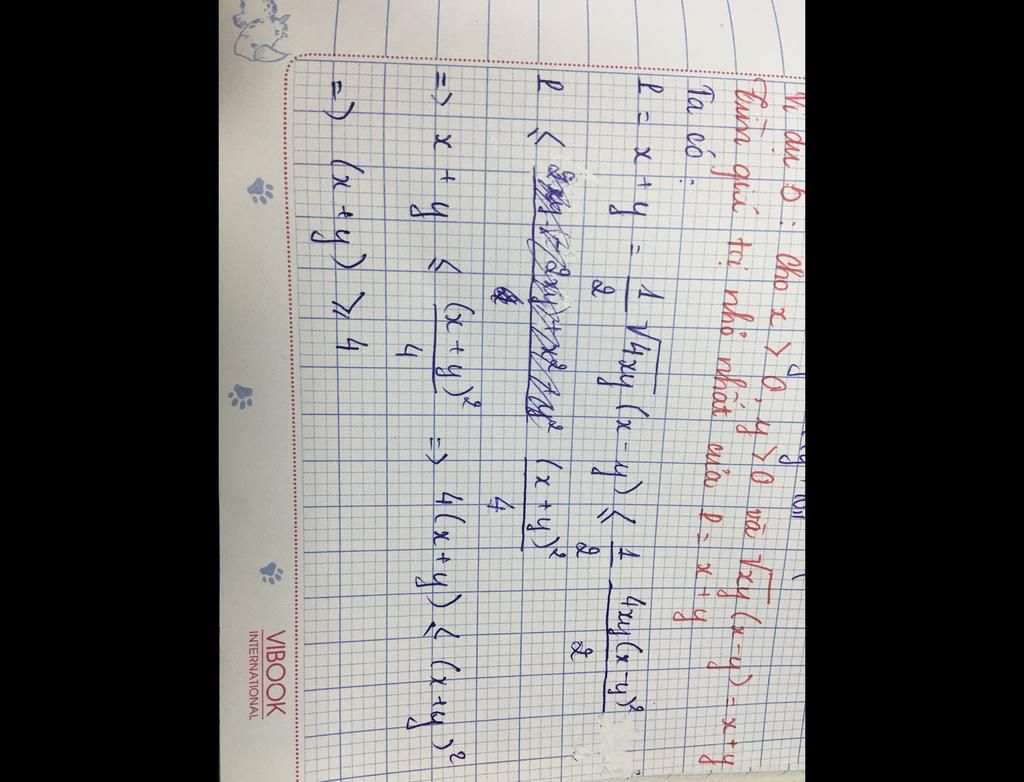 Ví dụ 6: Cho x > 0, y > 0 và √xy (x - y) = x + y
Tìm giá tị nhỏ nhất của P = x + y
Ta có:
P = x + y = 1/2 √4xy (x - y) ≤ 1/2 4xy(x - y)²/2
P ≤ (x + y)²/4
=> x + y ≤ (x + y)²/4 => 4(x + y) ≤ (x + y)²
=> (x + y) ≥ 4
VIBOOK
INTERNATIONAL